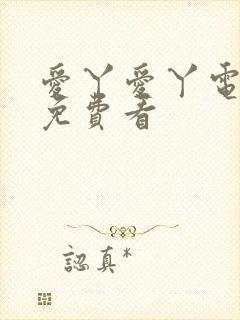 愛丫愛丫電
免費看
認真*